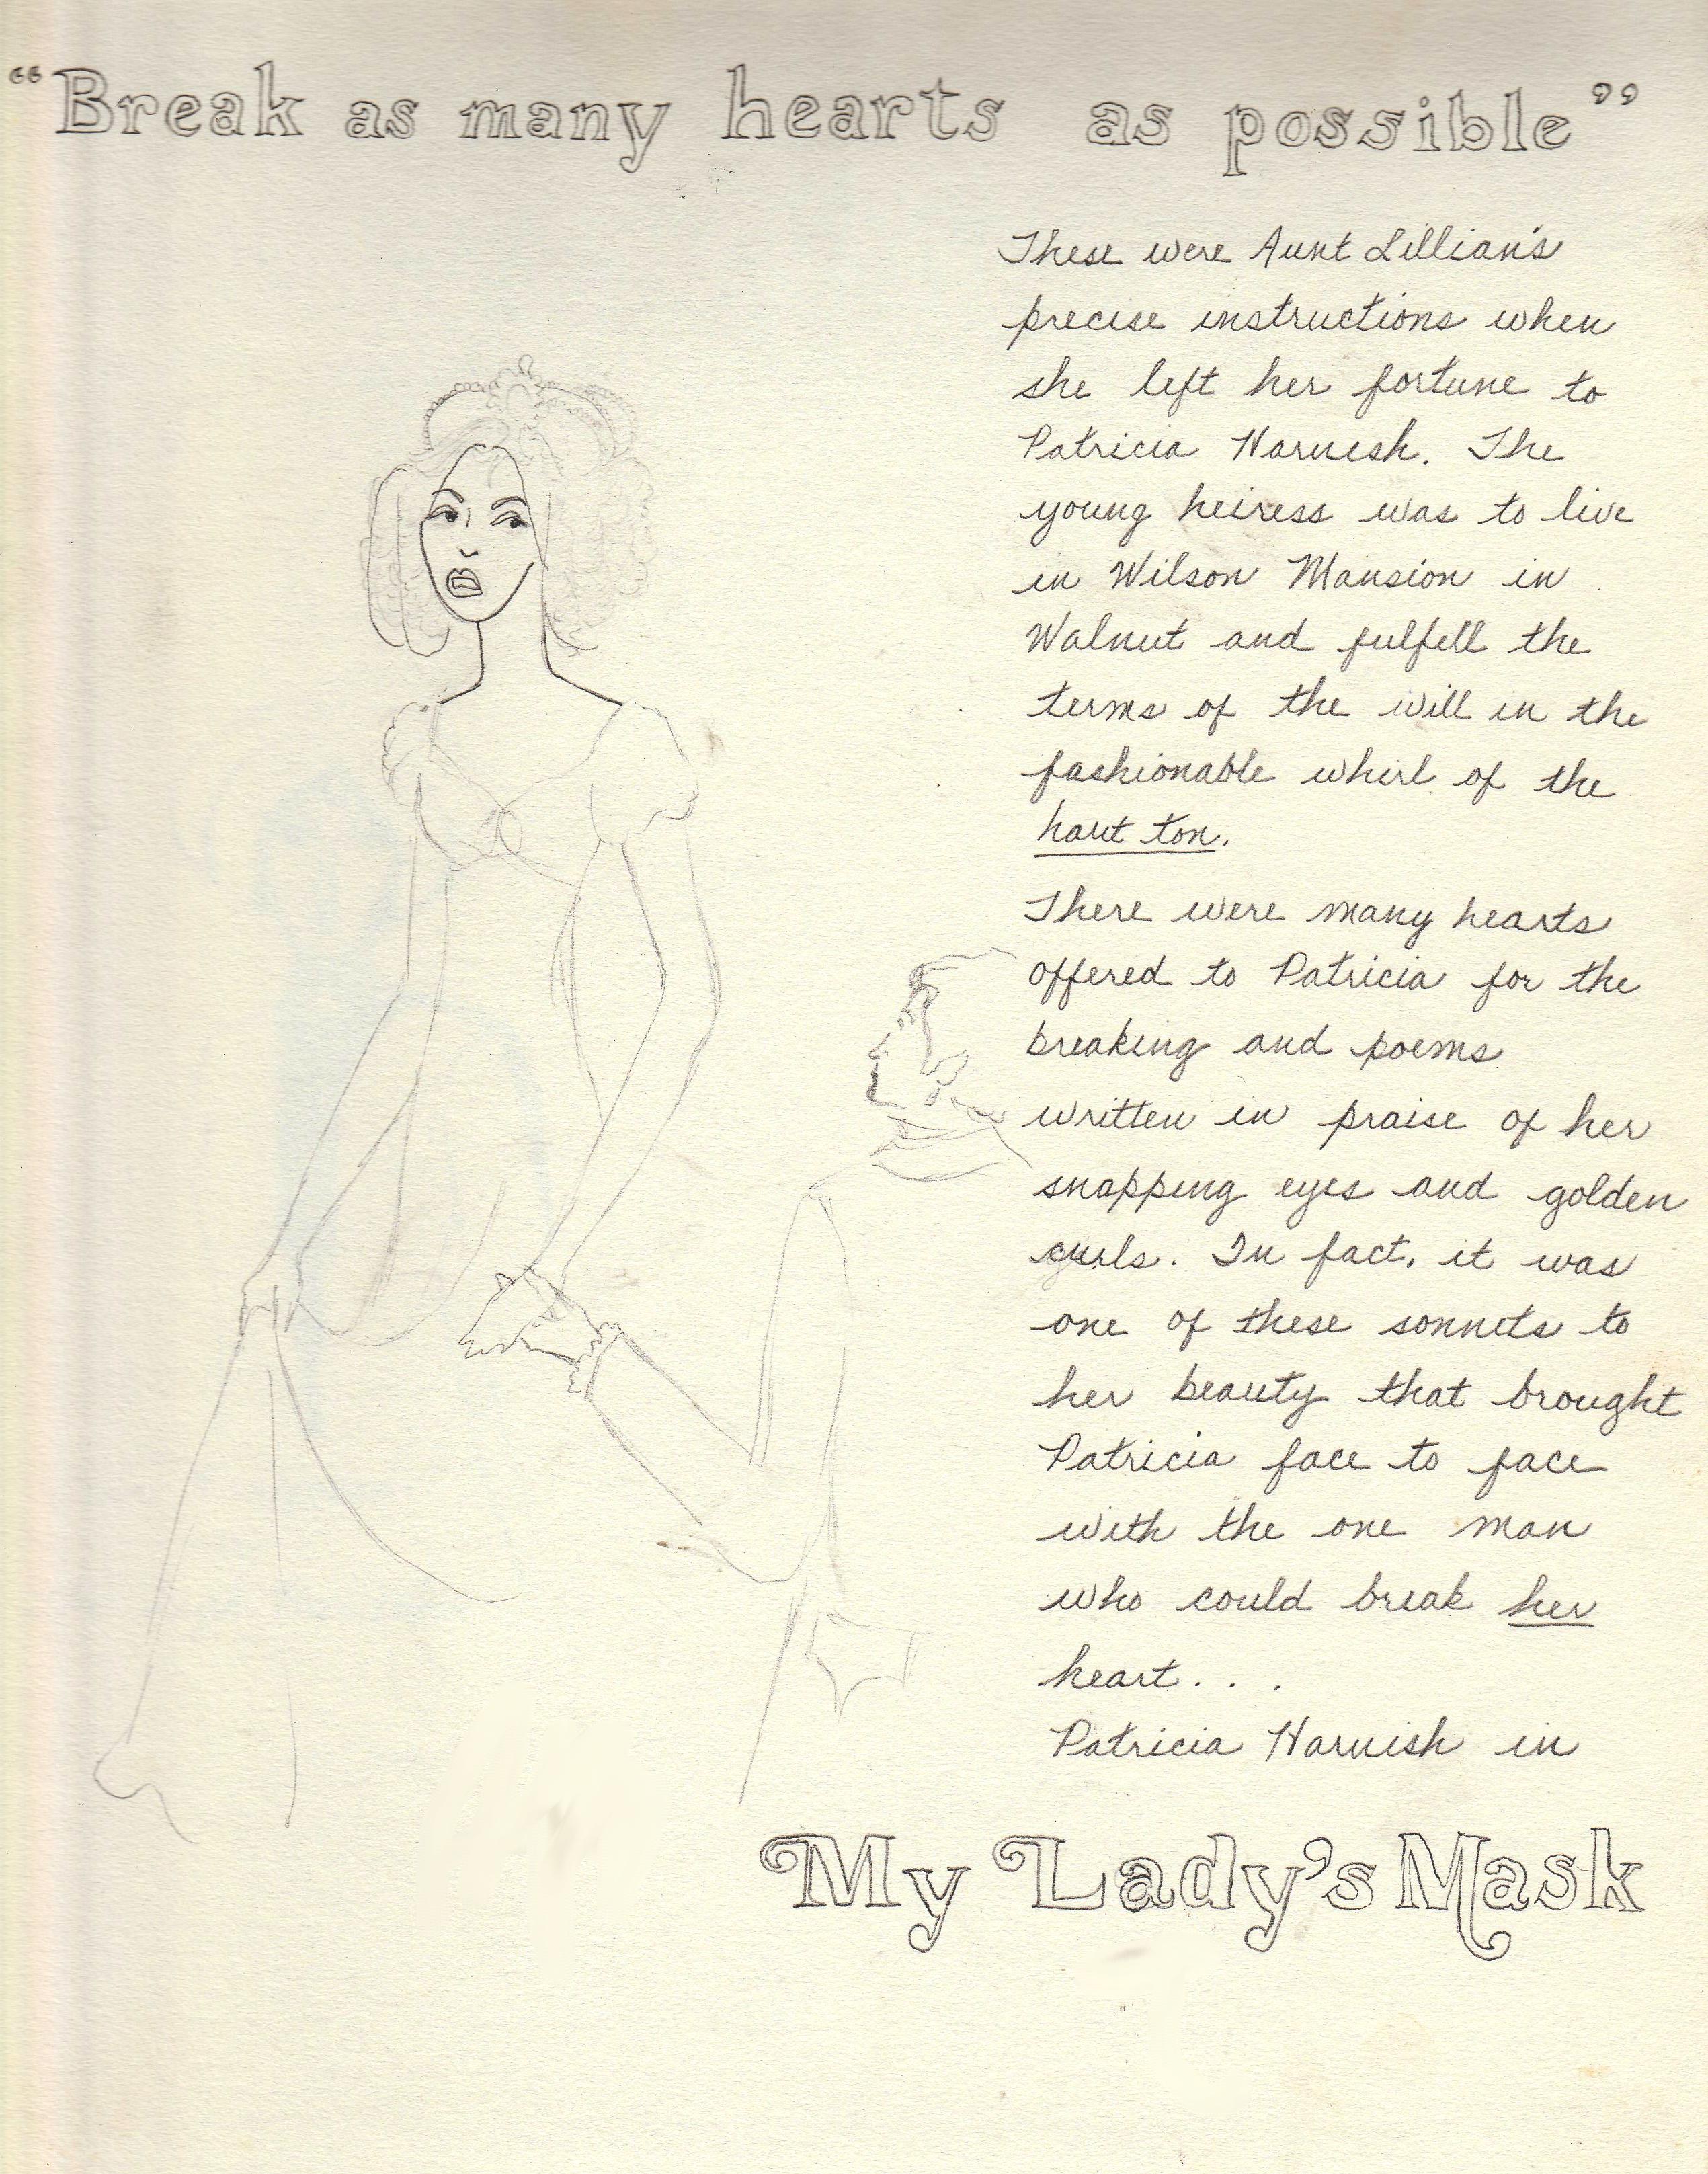 “Break as many hearts as possible”
These were Aunt Lillian's
precise instructions when
she left her fortune to
Patricia Harnish. The
young heiress was to live
in Wilson Mansion in
Walnut and fulfill the
terms of the will in the
fashionable whirl of the
haut ton.
There were many hearts
offered to Patricia for the
breaking and poems
written in praise of her
snapping eyes and golden
curls. In fact, it was
one of these sonnets to
her beauty that brought
Patricia face to face
with the one man
who could break her
heart. . .
Patricia Harnish in
My Lady's Mask